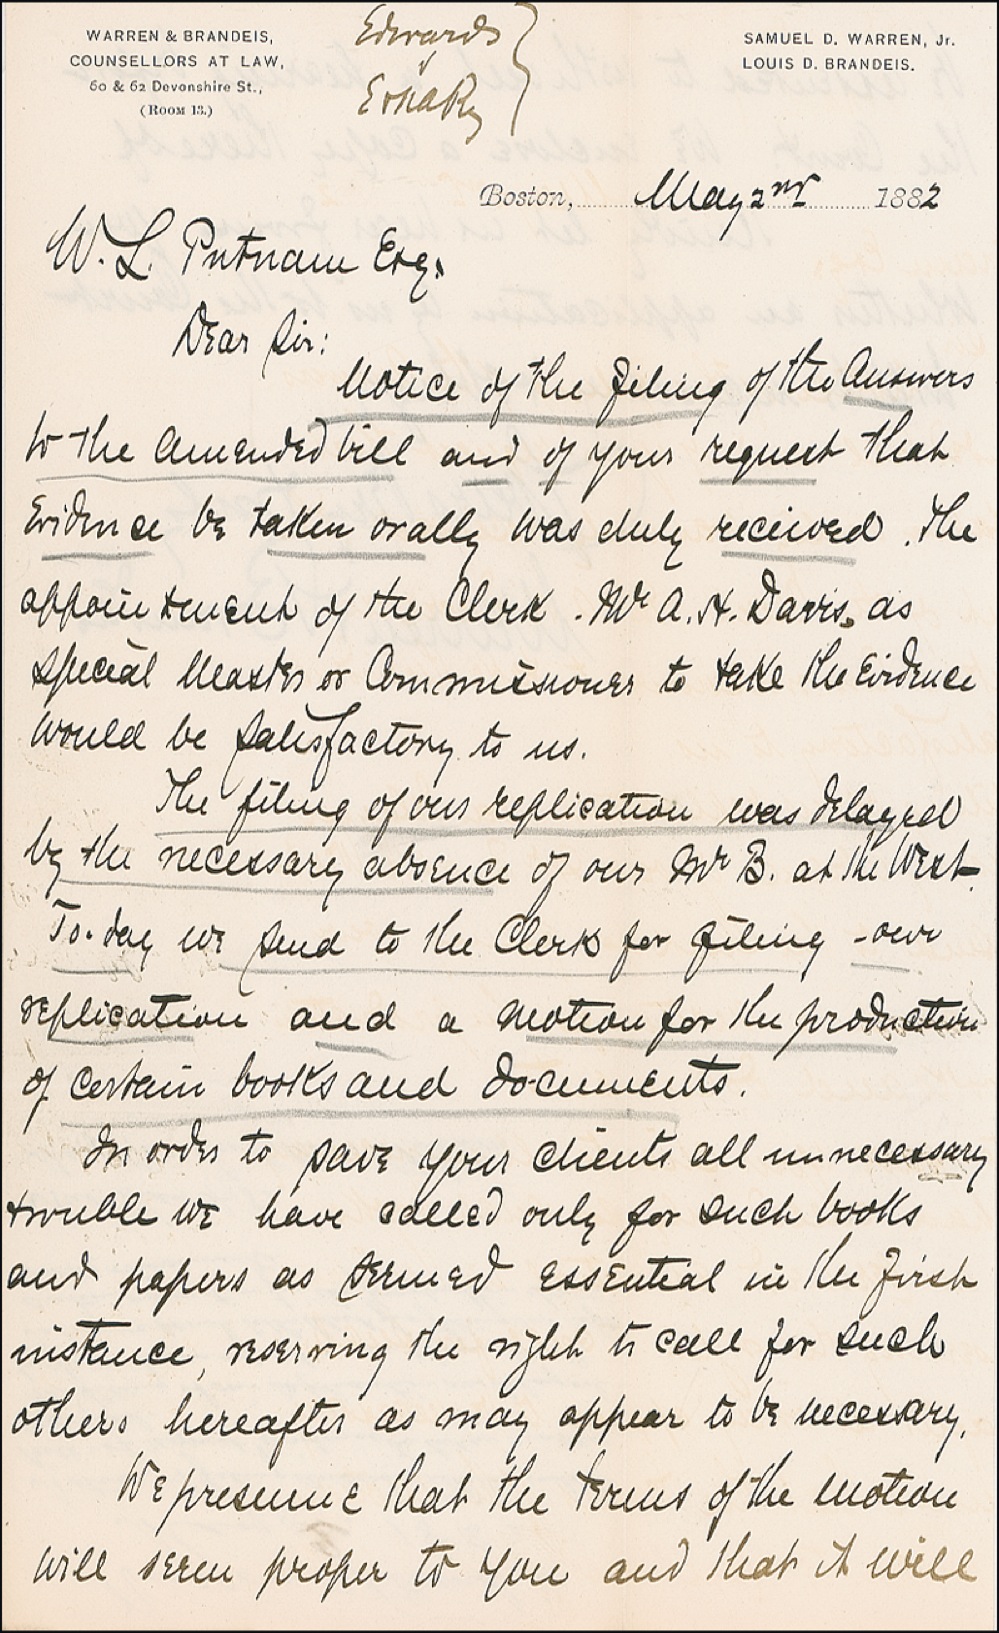 WARREN & BRANDEIS,
COUNSELLORS AT LAW,
60 & 62 Devonshire St.,
(Room 13.)
Edwards
v
SAMUEL D. WARREN, Jr.
LOUIS D. BRANDEIS.
Boston, May 2nd 1882
W. L. Putnam Esq.
Dear Sir:
Notice of the filing of the Answers
to the Amended bill and of your request that
Evidence be taken orally was duly received. The
appointment of the Clerk. Mr A. H. Davis, as
Special Master or Commissioner to take the Evidence
would be satisfactory to us.
The filing of our replication was delayed
by the necessary absence of our Mr B. at the West.
To-day we send to the Clerk for filing - our
replication and a motion for the production
of certain books and documents.
In order to save your clients all unnecessary
trouble we have called only for such books
and papers as seemed essential in the first
instance, reserving the right to call for such
others hereafter as may appear to be necessary.
We presume that the terms of the motion
will seem proper to you and that it will